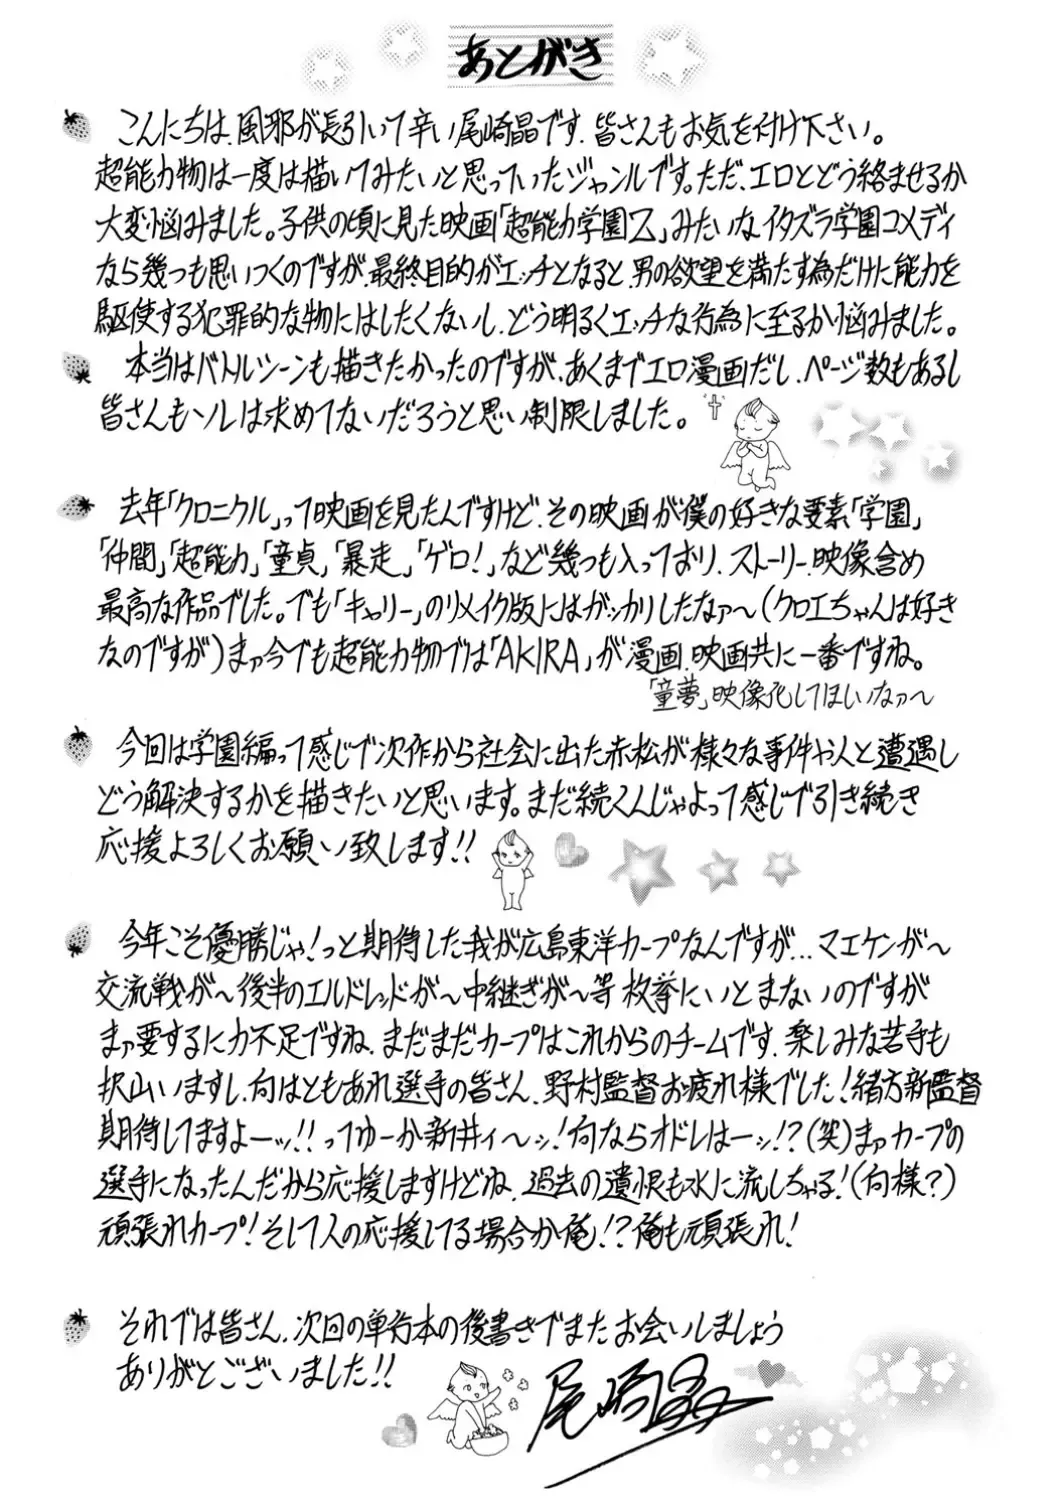 あとがき
こんにちは、風邪が長引いて辛い尾崎晶です、皆さんもお気を付け下さい。
超能力物は一度は描いてみたいと思っていたジャンルです。ただ、エロとどう絡ませるか
大変悩みました。子供の頃に見た映画「超能力学園Z」みたいなイタズラ学園コメディ
なら幾つも思いつくのですが、最終目的がエッチとなると、男の欲望を満たす為だけに能力を
駆使する犯罪的な物にはしたくないし、どう明るくエッチな行為に至るか悩みました。
本当はバトルシーンも描きたかったのですが、あくまでエロ漫画だし、ページ数もあるし
皆さんもソレは求めてないだろうと思い制限しました。
去年「クロニクル」って映画を見たんですけど、その映画が僕の好きな要素「学園」
「仲間」「超能力」「童貞」「暴走」「ゲロ！」など幾つも入っており、ストーリー、映像含め
最高な作品でした。でも「キャリー」のリメイク版にはガッカリしたなァ〜（クロエちゃんは好き
なのですが）まァ今でも超能力物では「AKIRA」が漫画、映画共に一番ですね。
「童夢」映像化してほしいなァ〜
今回は学園編って感じで次作から社会に出た赤松が様々な事件や人と遭遇し
どう解決するかを描きたいと思います。まだ続くんじゃよって感じで引き続き
応援よろしくお願い致します！！
今年こそ優勝じゃ！っと期待した我が広島東洋カープなんですが…マエケンが〜
交流戦が〜後半のエルドレッドが〜中継ぎが〜等 枚挙にいとまないのですが
まァ要するに力不足ですね、まだまだカープはこれからのチームです、楽しみな若手も
沢山いますし、何はともあれ選手の皆さん、野村監督お疲れ様でした！緒方新監督
期待してますよーッ！！ってゆーか新井ィ〜ッ！何ならオドレはーッ！？（笑）まァカープの
選手になったんだから応援しますけどね、過去の遺恨も水に流しちゃる！（何様？）
頑張れカープ！そして人の応援してる場合か俺！？俺も頑張れ！
それでは皆さん、次回の単行本の後書きでまたお会いしましょう
ありがとございました！！
尾崎晶